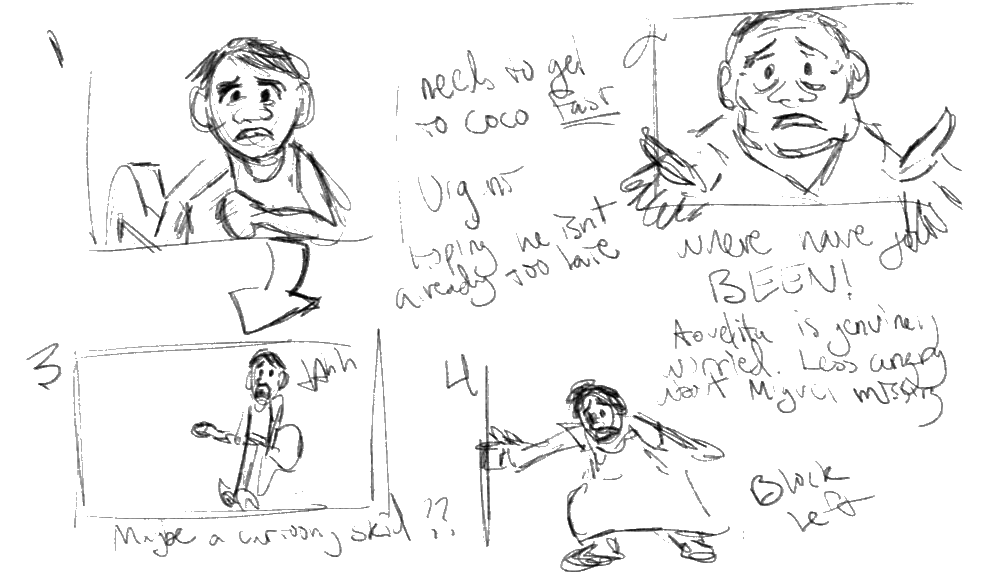 1
needs to get
to coco fast
Urgent
hoping he isn't
already too late
2
where have you
BEEN!
Abuelita is genuinely
worried. Less angry
about Miguel missing
3
Ahh
Maybe a cartoony skid ??
4
Block
Left